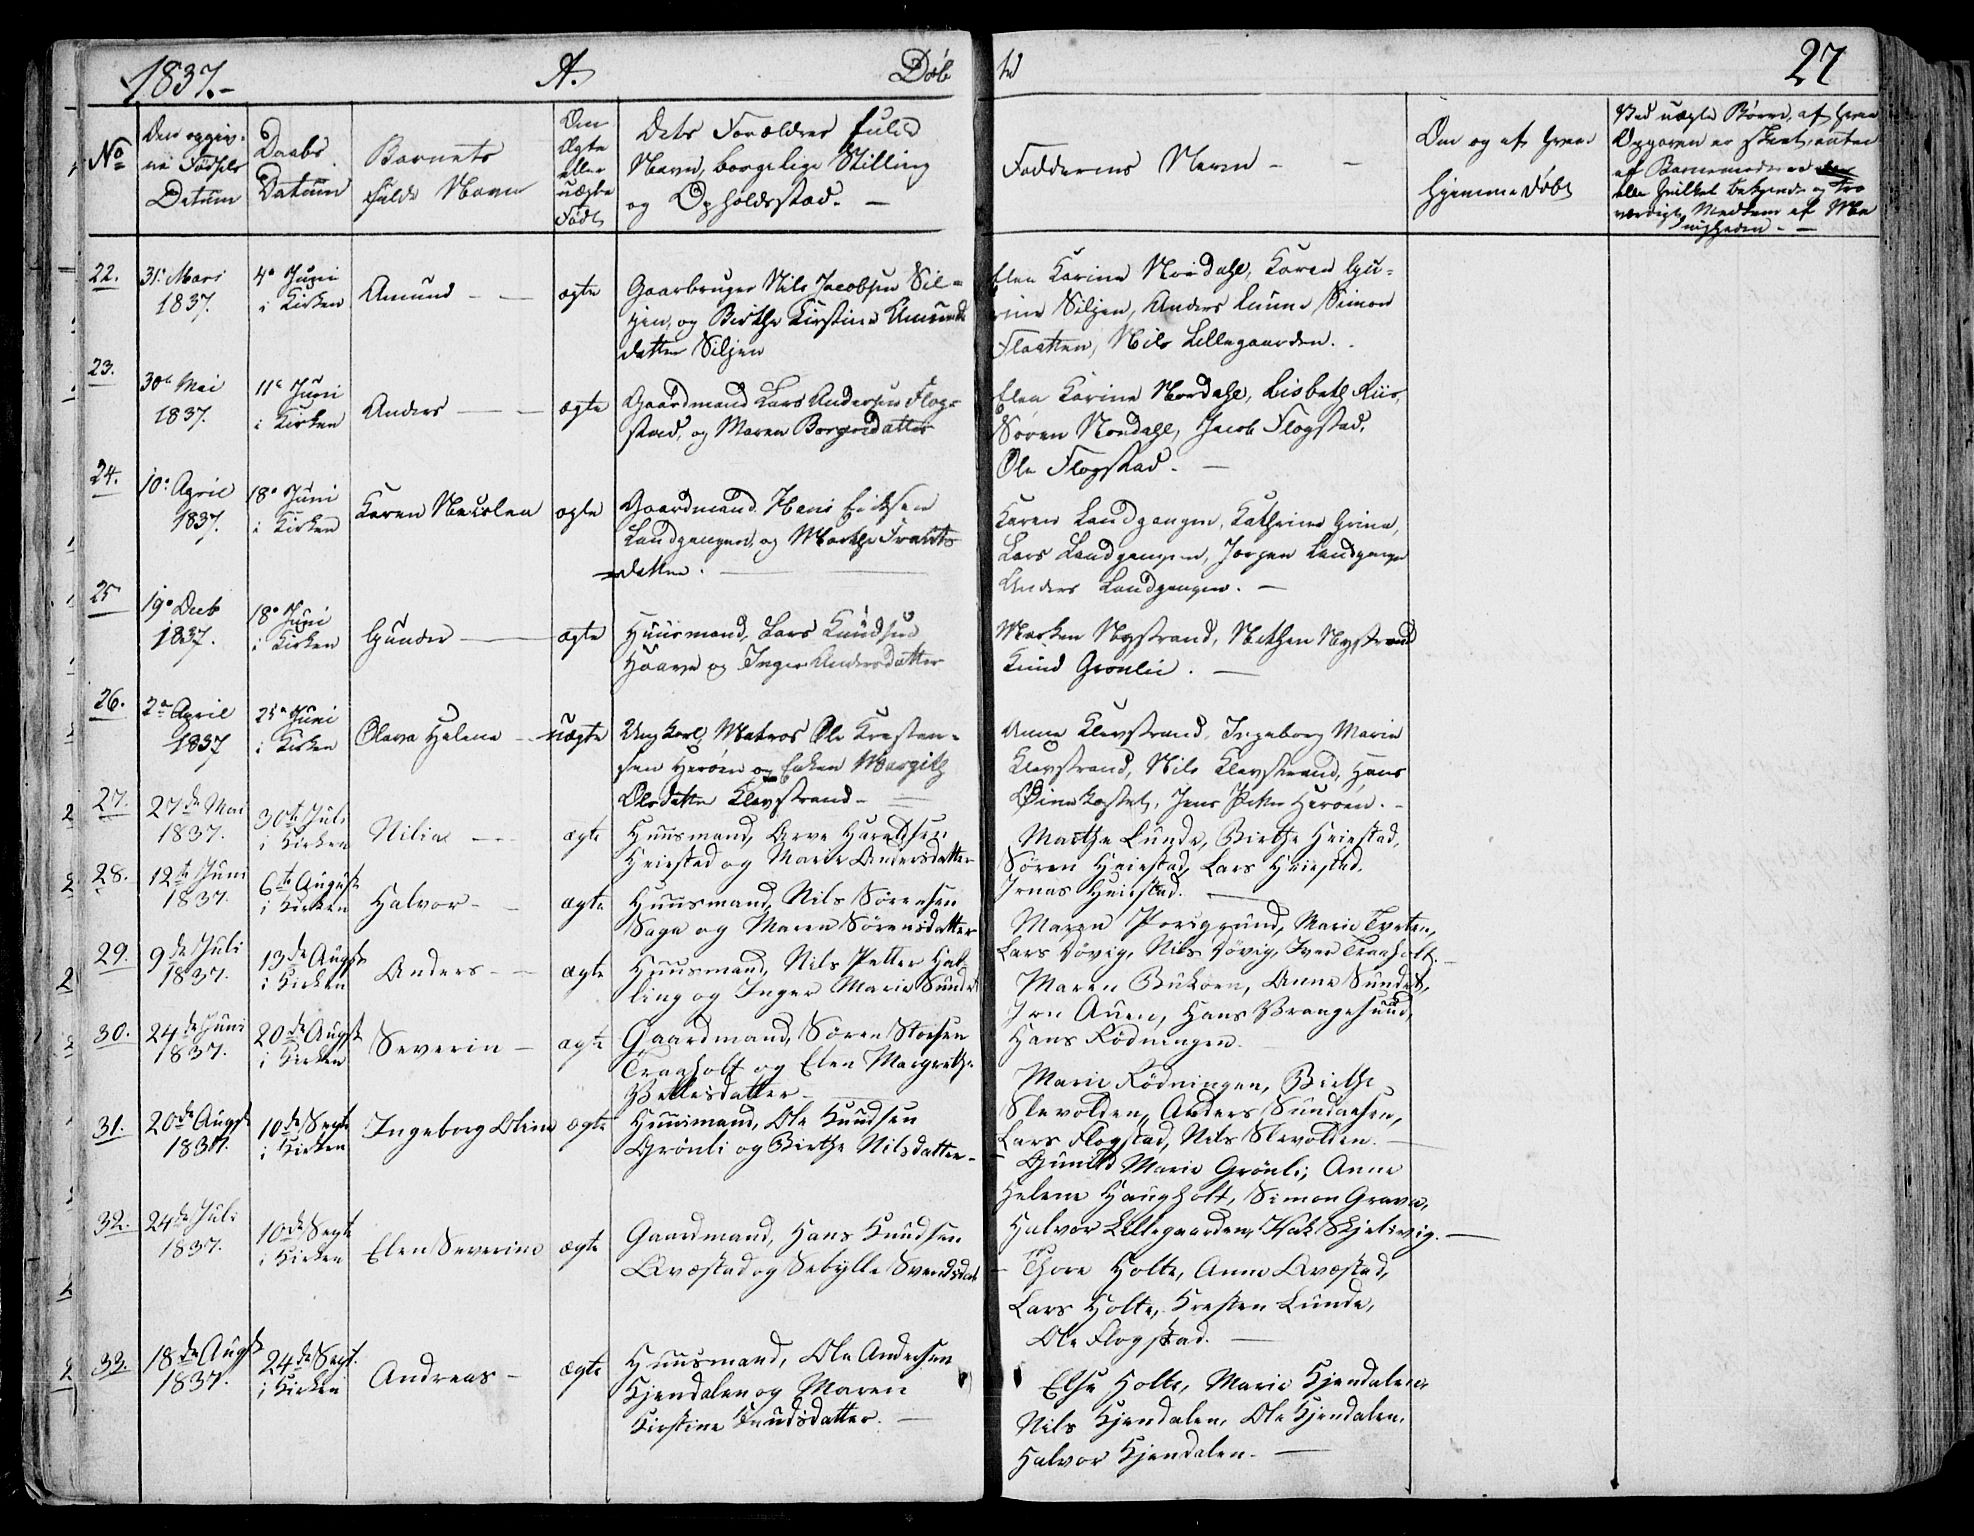 1837.- A. Døbte 27
No
Den opgivne Fødsels Datum
Daabs Datum
Barnets fulde Navn
Om Ægte eller uægte Født
Dets Forældres fulde Navn, borgelige Stilling og Opholdsstad. -
Faddernes Navn - -
Om og af hvem hjemmedøbt
Ved uægte Børn, af hvem Opgaven er skeet, enten af Barnemoderen eller hvilket bekjendt og troværdigt Medlem af Menigheden. -
22. 31 Mars 1837. 4de Juni i Kirken Amund - - ægte
Gaarbruger Nils Jacobsen Sil-
jen, og Birthe Kirstine Amunds
datter Siljen
Elen Karine Nordahl, Karen Gu-
rine Siljen, Anders Lunne, Simon
Flaatten, Nils Lillegaarden.
23. 30 Mai 1837. 11 Juni i Kirken Anders - - ægte
Gaardmand Lars Andersen Flog-
stad, og Maren Borgersdatter
Elen Karine Nordahl, Lisbeth Riis,
Søren Nordahl, Jacob Flogstad,
Ole Flogstad. -
24. 10 April 1837. 18 Juni i Kirken Karen Neuslea ægte
Gaardmand Hans Eriksen
Landgangen, og Marthe Frants
datter.
Karen Landgangen, Kathrine Grine,
Lars Landgangen, Jørgen Landgangen
Anders Landgangen. -
25 19 Decb 1837. 18 Juni i Kirken Gunder - ægte
Huusmand, Lars Knudsen
Haave og Inger Andersdatter
Marken Nystrand, Nethen Nystrand
Knud Grønlie. -
26. 2 April 1837 25 Juni i Kirken Olava Helene - uægte
Ungkarl Matros Ole Kresten-
sen Herøen og Enken Margith
Olsdatter Klevstrand -
Anne Klevstrand, Ingeborg Marie
Klevstrand, Nils Klevstrand, Hans
Østnekastet, Jens Peter Herøen. -
27. 27de Mai 1837. 30te Juli i Kirken Nilia - - ægte
Huusmand, Arve Haraldsen
Heiestad og Marie Andersdatter
Marthe Lunde, Birthe Heiestad,
Søren Heiestad, Lars Heiestad.
Jonas Heiestad. -
28. 12te Juni 1837. 6te August i Kirken Halvor - - ægte
Huusmand, Nils Sørensen
Saga og Maren Sørensdatter
Maren Porsgrund, Marie Tveten,
Lars Døvig, Nils Døvig, Iver Traaholt. -
29. 9de Juli 1837. 13de Augst i Kirken Anders - - ægte
Huusmand, Nils Petter Hal-
ling og Inger Marie Sundet
Maren Bukøen, Anne Sundet,
Jon Auen, Hans Vrangesund,
Hans Rødningen.
30. 24de Juni 1837. 20de Augst i Kirken Severin - ægte
Gaardmand, Søren Stoesen
Traaholt og Elen Margrethe
Pettersdatter -
Marie Rødningen, Birthe
Slevolden, Anders Sundaasen,
Lars Flogstad, Nils Slevolden. -
31. 20de Augst 1837. 10de Septe i Kirken Ingeborg Oline ægte
Huusmand, Ole Knudsen
Grønli og Birthe Nilsdatter -
Gunild Marie Grønli, Anne
Helene Haugholt, Simon Grava,
Halvor Lillegaarden, Isak Skjelsvig. -
32. 24de Juli 1837. 10de Septe i Kirken Elen Severine ægte
Gaardmand, Hans Knudsen
Qvæstad og Sebylle Svendsdat
Thore Holte, Anne Qvæstad,
Lars Holte, Kresten Lunde,
Ole Flogstad. -
33. 18de Augst 1837. 24de Sept. i Kirken Andreas - ægte
Huusmand, Ole Andersen
Kjendalen og Maren
Kirstine Knudsdatter. -
Else Holte, Marie Kjendalen,
Nils Kjendalen, Ole Kjendalen,
Halvor Kjendalen. -